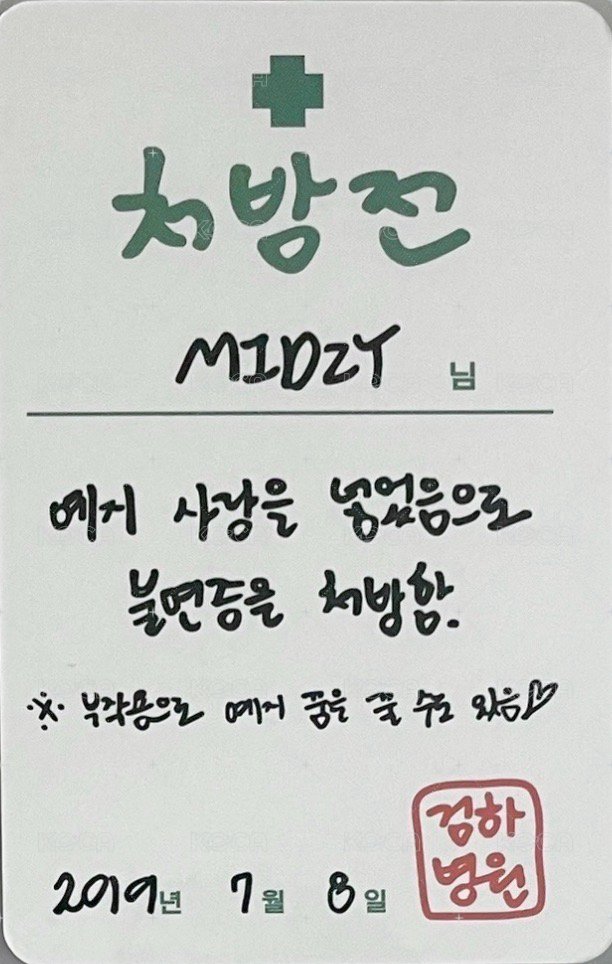 처방전
MIDZY 님
예지 사랑을 넣었음으로
불면증을 처방함.
※ 부작용으로 예지 꿈을 꿀 수도 있음♡
검하
병원
2019년 7월 8일